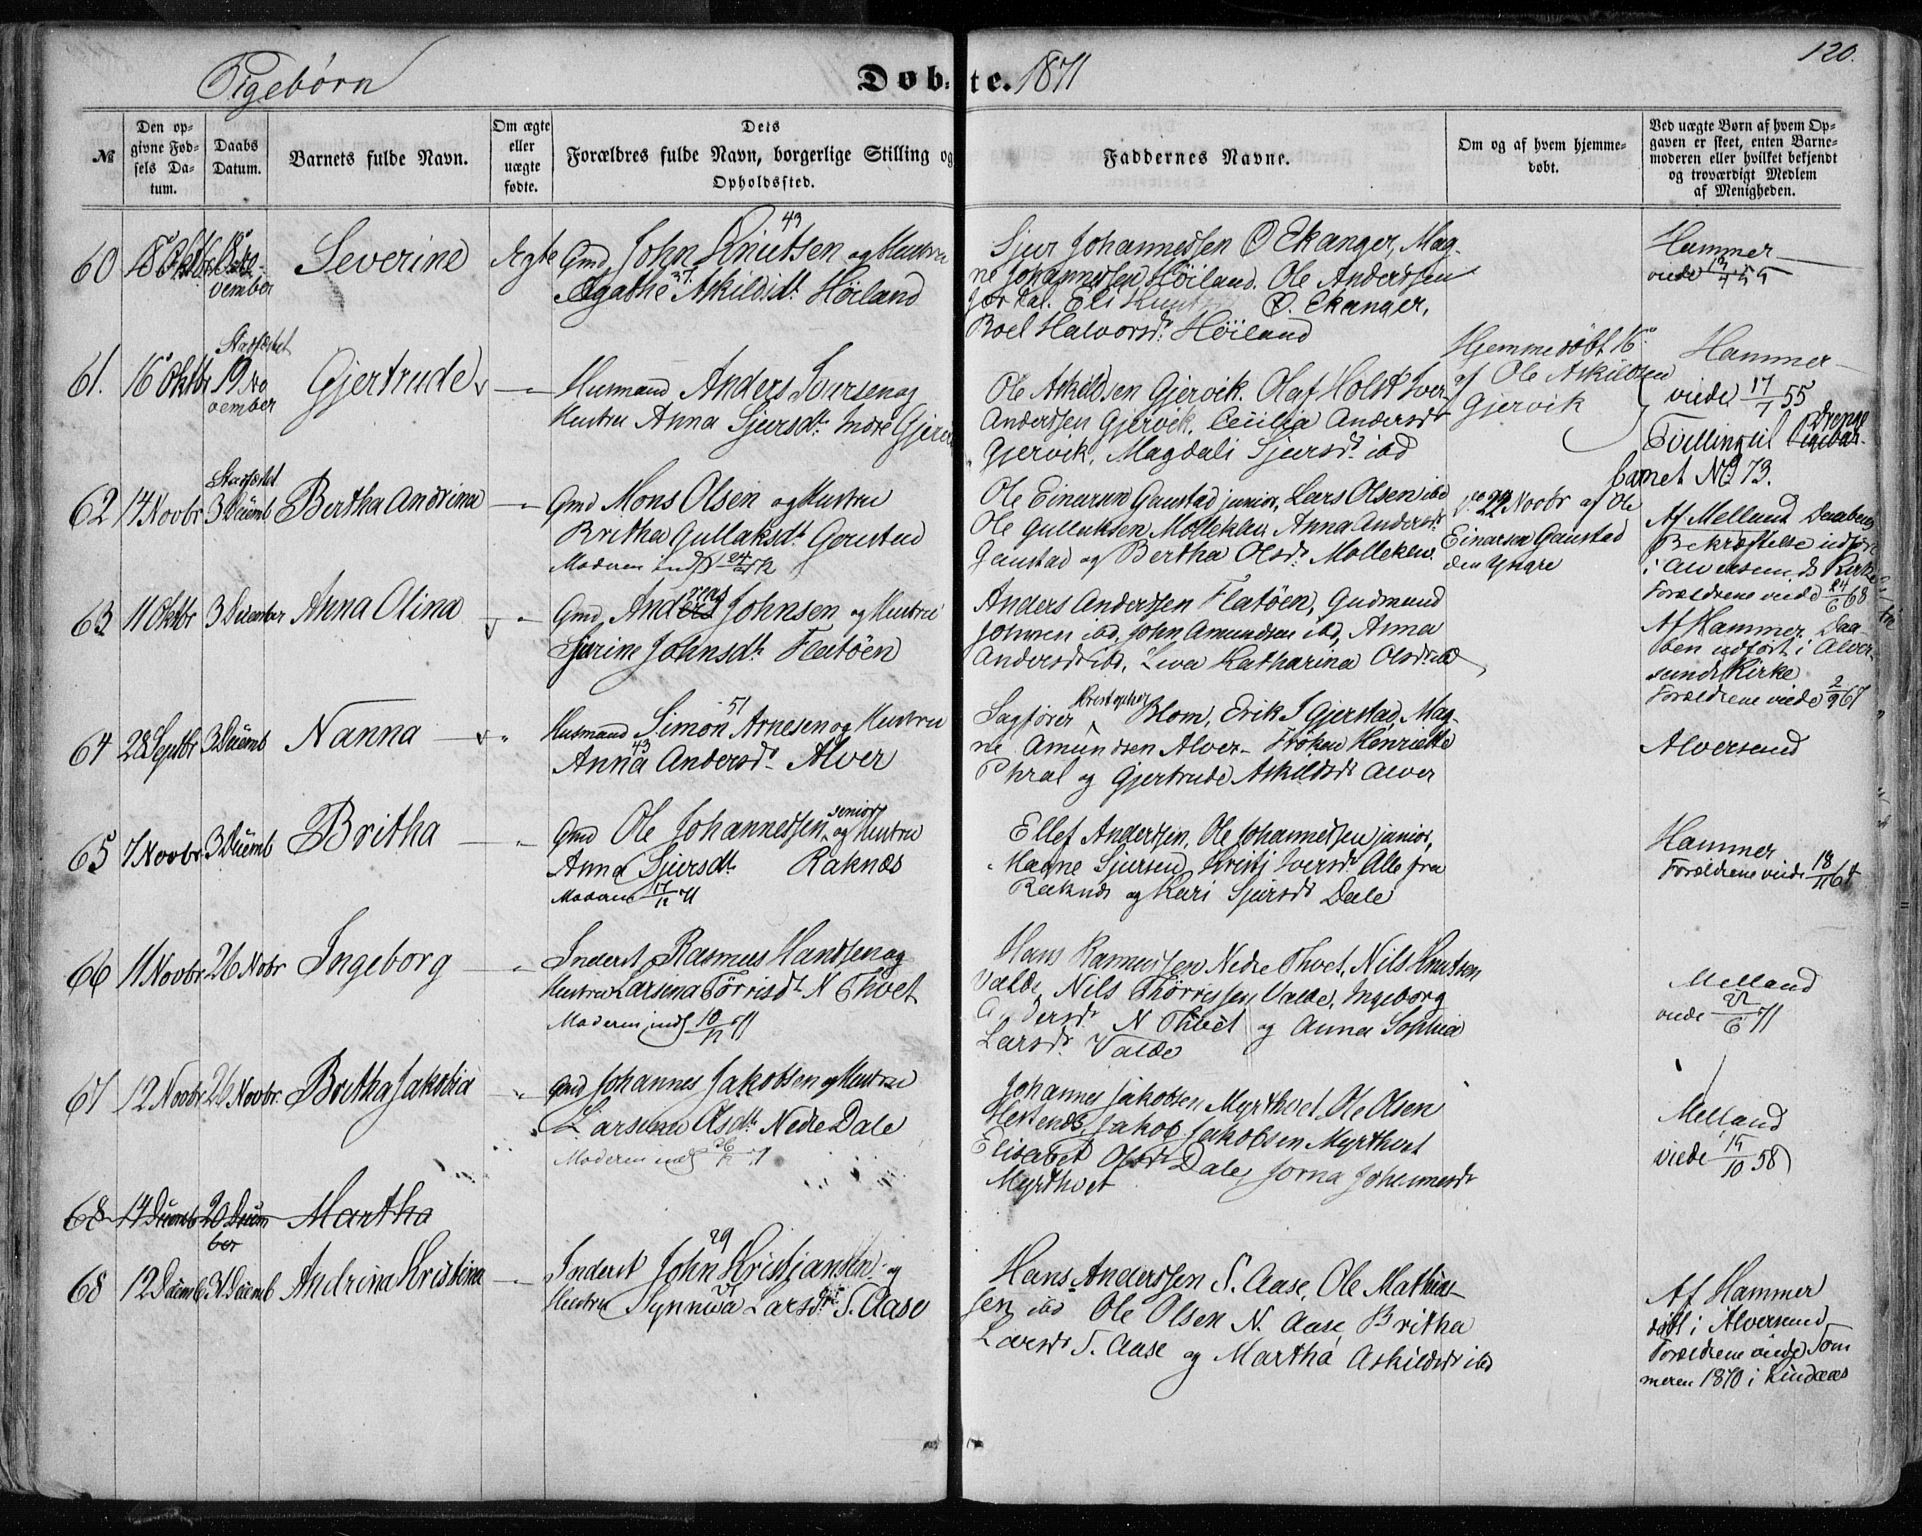 120.
Pigebørn
Døbte. 1871
№
Den op-
givne Fød-
sels Da-
tum.
Daabs
Datum.
Barnets fulde Navn.
Om ægte
eller
uægte
fødte.
Dets
Forældres fulde Navn, borgerlige Stilling og
Opholdssted.
Faddernes Navne.
Om og af hvem hjemme-
døbt.
Ved uægte Børn af hvem Op-
gaven er skeet, enten Barne-
moderen eller hvilket bekjendt
og troværdigt Medlem
af Menigheden.
60 18 Oktbr vember Severine Ægte Gmd John Knutsen 43 og Hustru
Agathe Askildsdt. Höiland
Sjur Johannessen Ø Ekanger, Mag-
ne Johannessen Höiland. Ole Anderssen
Eli Ø. Ekanger,
Roel Halvorsdt. Höiland
Hammer
viede
61. 16 Oktbr Stadfæstet 19 No
vember Gjertrude Husmand Anders Iversen og
Hustru Anna Sjursdt. Indre Gjervik
Ole Askildsen Gjervik. Olaf Holst Iver
Anderssen Gjervik, Cecilia Andersdt
Gjervik, Magdali Sjursdt. ibd
Hjemmedöbt 16
af Ole Askildsen
Gjervik
Hammer
viede 17/7 55
Tvilling til Drenge-
barnet No 73.
62 14 Novbr Stadfæstet 3 Decemb Bertha Andrina Gmd Mons Olsen og Hustru
Britha Gullaksdt. Gaustad
Moderen indl 24/12
Ole Einarsen Gaustad junior, Lars Olsen ibd
Ole Gullaksen Mollekleiv Anna Andersdt
Gaustad og Bertha Olsdt. Molleklev.
22 Novbr af Ole
Einarsen Gaustad
den yngre
Af Melland Daabens
Bekræftelse udført
i Alversunds Kirke
Forældrene viede 24/6 68
63 11 Oktbr 3 December Anna Olina Gmd Anders Johnsen og Hustru
Sjurine Johnsdt. Flatöen
Anders Anderssen Flatöen, Gudmund
Johnsen ibd, John Amundsen ibd, Anna
Andersdt ibd, Lina Katharina Olsdt ibd
Af Hammer, Daa-
ben udført i Alver-
sunds Kirke
Forældrene viede 2/9 67
64 28 Septbr 3 Decemb Nanna Husmand Simon 51 Arnesen og Hustru
Anna 43 Andersdt. Alver
Sagfører Kristopher Blom, Erik I Gjerstad, Mag-
ne Amundsen Alver- Fröken Henriette
og Gjertrude Askildsdt Alver
Alversund
65 7 Novbr 3 Decemb Britha Gmd Ole Johannessen senior og Hustru
Anna Sjursdt. Raknæs
Moderen 17/12 71
Ellef Anderssen, Ole Johannessen junior,
Magne Sjursen Kristj Iversdt Alle fra
Raknæs og Kari Sjursdt Dale
Hammer
Forældrene viede 18/11 67
66 11 Novbr 26 Nobr Ingeborg Inderst Rasmus Hanssen og
Hustru Larsina Törrisdt. N Thvet
Moderen indl 10/12 71
Hans Rasmussen Nedre Thvet, Nils Knutsen
Valde, Nils Thörrissen Valde, Ingeborg
Andersdt N Thvet og Anna Sophia
Larsdt. Valde
Melland
viede 22/6 71
67 12 Novbr 26 Novbr. Britha Jakobia Gmd Johannes Jakobsen og Hustru
Larsina Olsdt. Nedre Dale
Moderen indl 26/12 71
Johannes Jakobsen Myrthvet, Ole Olsen
Jakob Jakobsen Myrthvet
Elisabet Olsdt Dale, Jorna Johannesdt
Myrthvet
Melland
viede 15/10 58
68 14 Decemb 20 Decem
ber Martha
68 12 Decemb 31 Decemb Andrina Kristina Inderst John 29 Kristjansen og
Hustru Synneva Larsdt. S. Aase
Hans Anderssen S. Aase, Ole Mathias-
sen ibd Ole Olsen N. Aase, Britha
Larsdt S. Aase og Martha Askildsdt ibd
Af Hammer
döbt i Alversund
Forældrene viede Som-
meren 1870 i Lindaas